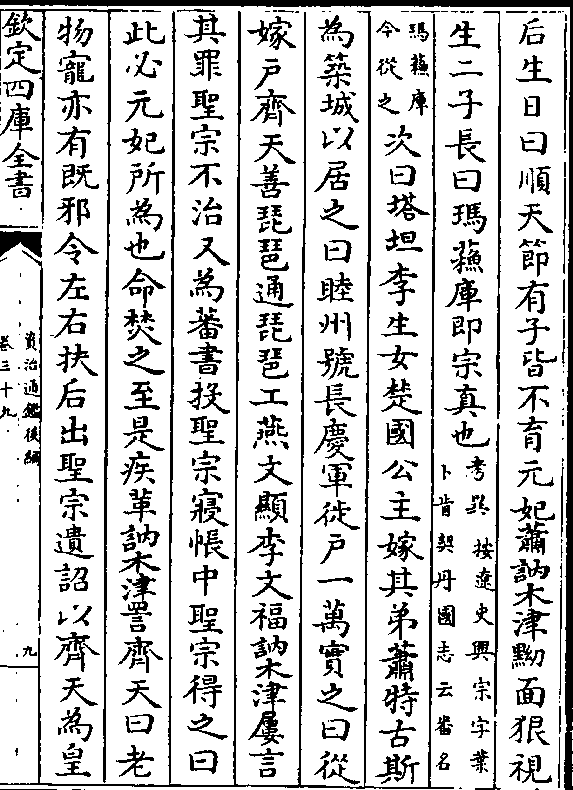 后生日曰順天節有子皆不育元妃蕭訥木津黝面狠視
生二子長曰瑪蘓庫即宗真也考異按遼史興宗字業
卜肯契丹國志云畨名
瑪蘓庫
今從之次曰塔坦李生女楚國公主嫁其弟蕭特古斯
為築城以居之曰睦州號長慶軍徙戶一萬實之曰從
嫁戶齊天善琵琶通琵琶工燕文顯李文福訥木津屢言
其罪聖宗不治又為蕃書投聖宗寢帳中聖宗得之曰
此必元妃所為也命焚之至是疾革訥木津詈齊天曰老
物寵亦有既邪令左右扶后出聖宗遺詔以齊天為皇
欽定四庫全書
資治通鑑後編
卷三十九
九